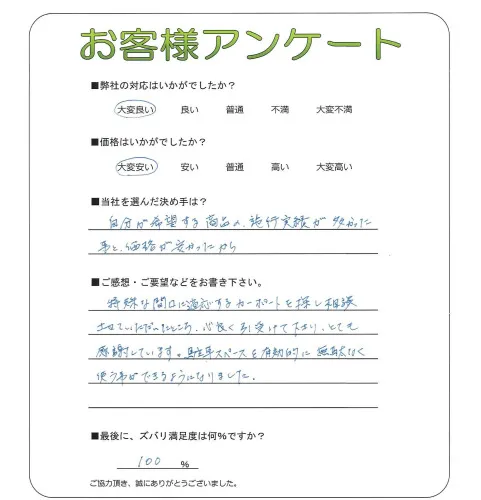 お客様アンケート
■弊社の対応はいかがでしたか?
大変良い 良い 普通 不満 大変不満
■価格はいかがでしたか?
大変安い 安い 普通 高い 大変高い
■当社を選んだ決め手は?
自分が希望する商品の、施行実績が多かった
事と、価格が安かったから
■ご感想・ご要望などをお書き下さい。
特殊な間口に適応するカーポートを探し相談
させていただいたところ、心良く引受けて下さり、とても
感謝しています。駐車スペースを有効的に無駄なく
使う事ができるようになりました。
■最後に、ズバリ満足度は何%ですか?
100 %
ご協力頂き、誠にありがとうございました。